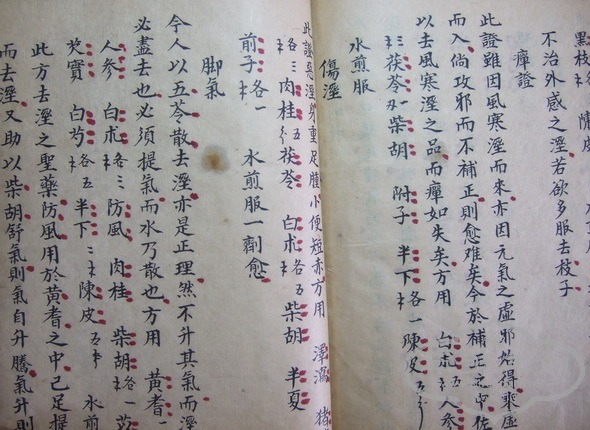 黑枝子
不治外感之溼若欲多服去枝子
痺證
此證雖因風寒溼而來亦因元氣之虛邪始得乘虛
而入倘攻邪而不補正則愈難矣今於補正之中佐
以去風寒溼之品而痺如失矣方用 白朮五 人參
三 茯苓 柴胡 附子 半下各一 陳皮五分
水煎服
傷溼
此證惡溼身重足腫小便短赤方用 澤瀉 猪
各三 肉桂 茯苓 白朮各五 柴胡 半夏
前子各一 水煎服一劑愈
脚氣
今人以五苓散去溼亦是正理然不升其氣而溼
必盡去也必須提氣而水乃散也方用 黃耆一
人參 白朮各三 防風 肉桂 柴胡各一
芡實 白芍各五 半下二 陳皮五 水煎
此方去溼之聖藥防風用於黃耆之中已足提
而去溼又助以柴胡舒氣則氣自升騰氣升則